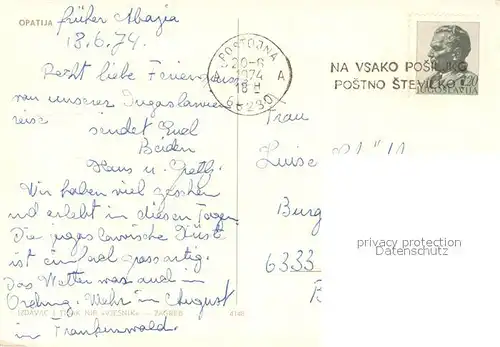 OPATIJA
früher Abazia
18.6.74.
Recht liebe Feriengrüsse
von unserer Jugoslawien
reise
sendet Euch
Beiden
Hans u. Gretl.
Wir haben viel gesehen
und erlebt in diesen Tagen.
Die jugoslawische Küste
ist einfach grossartig.
Das Wetter war auch in
Ordnung. Mehr im August
in Frankenwald.
IZDAVAČ I TISAK NIP »VJESNIK« — ZAGREB
4140
POSTOJNA
20-6
1974
18H
A
66230
NA VSAKO POŠILJKO
POŠTNO ŠTEVILKO
JUGOSLAVIJA
Frau
Luise
Burg
6333
privacy protection
Datenschutz